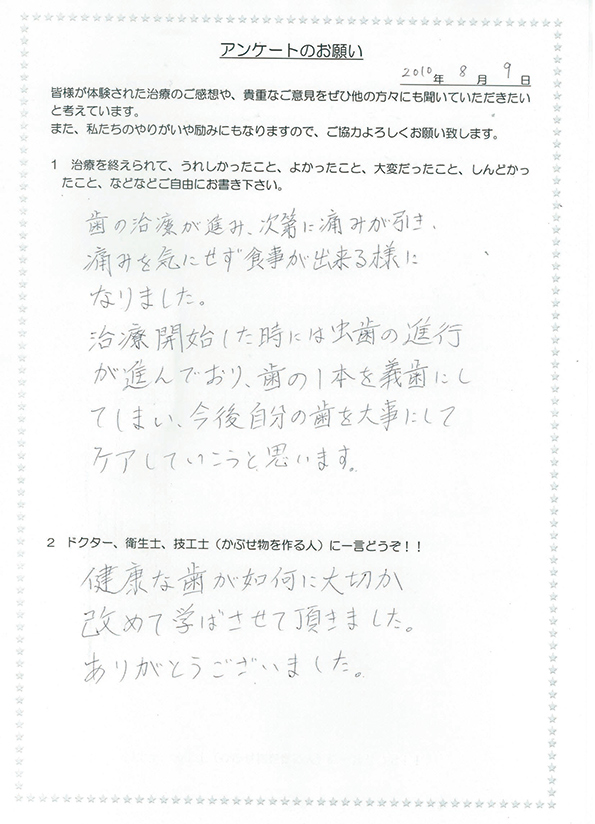 アンケートのお願い
2010年 8月 9日
皆様が体験された治療のご感想や、貴重なご意見をぜひ他の方々にも聞いていただきたい
と考えています。
また、私たちのやりがいや励みにもなりますので、ご協力よろしくお願い致します。
1 治療を終えられて、うれしかったこと、よかったこと、大変だったこと、しんどかっ
たこと、などなどご自由にお書き下さい。
歯の治療が進み、次第に痛みが引き、
痛みを気にせず食事が出来る様に
なりました。
治療開始した時には虫歯の進行
が進んでおり、歯の1本を義歯にし
てしまい、今後自分の歯を大事にして
ケアしていこうと思います。
2 ドクター、衛生士、技工士（かぶせ物を作る人）に一言どうぞ！！
健康な歯が如何に大切か
改めて学ばさせて頂きました。
ありがとうございました。